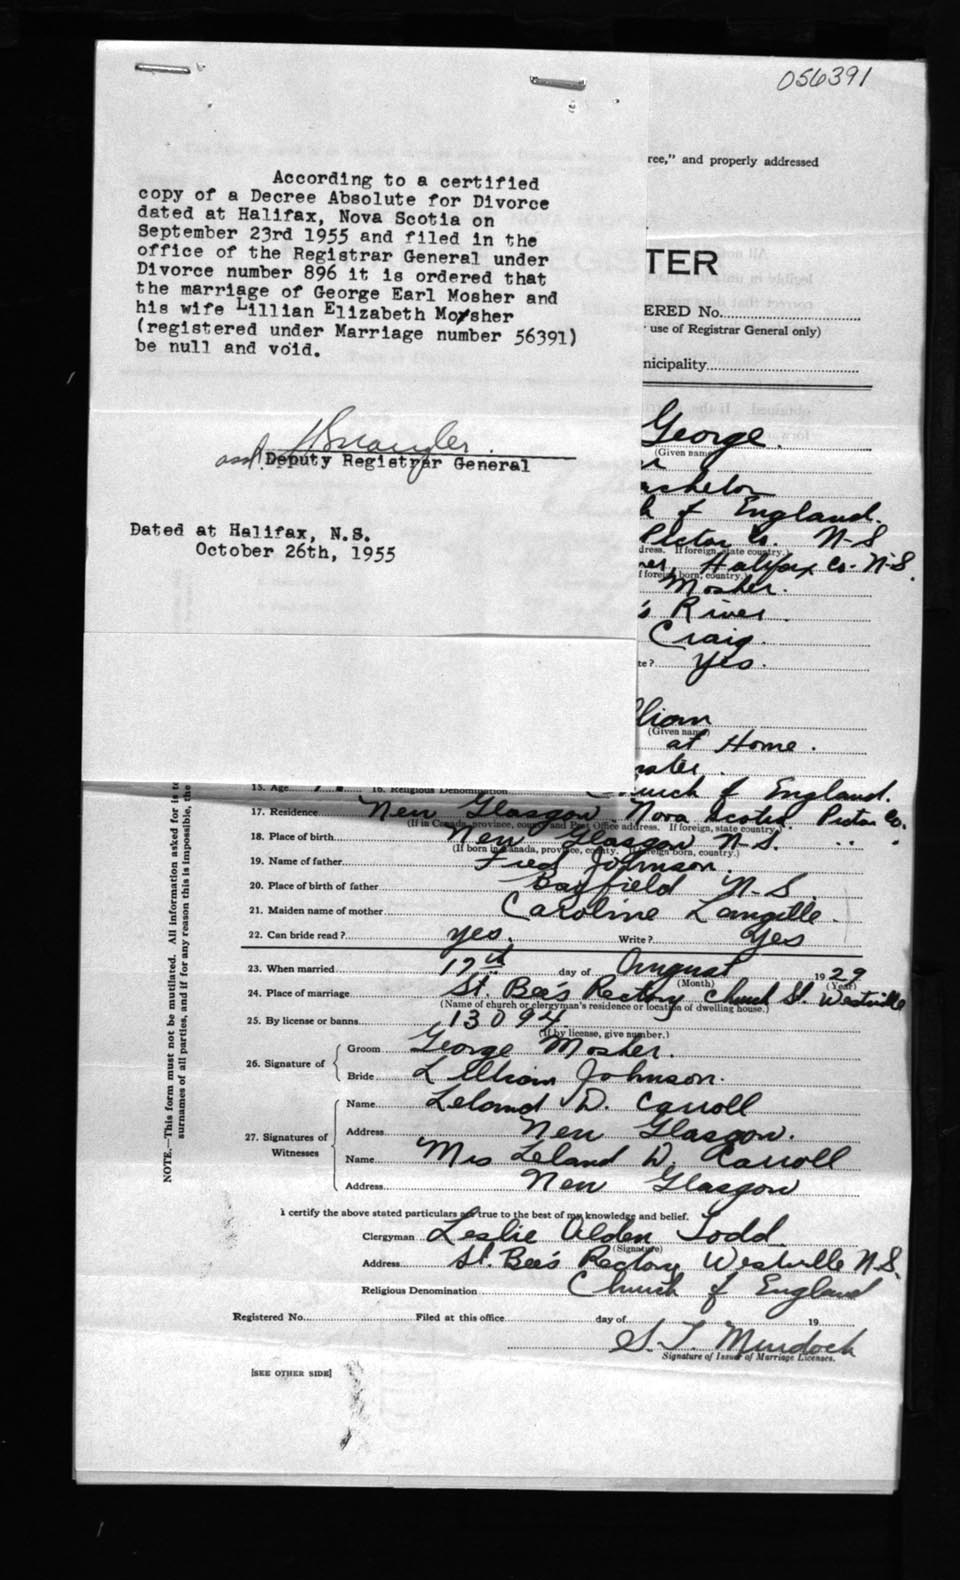 056391
According to a certified
copy of a Decree Absolute for Divorce
dated at Halifax, Nova Scotia on
September 23rd 1955 and filed in the
office of the Registrar General under
Divorce number 896 it is ordered that
the marriage of George Earl Mosher and
his wife Lillian Elizabeth Mosher
(registered under Marriage number 56391)
be null and void.
Deputy Registrar General
Dated at Halifax, N.S.
October 26th, 1955
ree," and properly addressed
TER
ERED No.
use of Registrar General only)
nicipality
George
(Given name
of England.
Pictou Co. N-S
dress. If foreign, state country.)
Halifax Co. N-S.
f foreign born, country.)
Mosher.
's River
Craig.
te? Yes.
llian
(Given name)
at Home.
15. Age 16. Religious Denomination Church of England.
17. Residence New Glasgow Nova Scotia Pictou Co.
(If in Canada, province, county and Post Office address. If foreign, state country.)
18. Place of birth New Glasgow N-S. " "
(If born in Canada, province, county. If foreign born, country.)
19. Name of father Fred Johnson.
20. Place of birth of father Bayfield N-S
21. Maiden name of mother Caroline Langille.
22. Can bride read? yes. Write? Yes
23. When married 17th day of August 1929
(Month) (Year)
24. Place of marriage St. Bee's Rectory Church St. Westville
(Name of church or clergyman's residence or location of dwelling house.)
25. By license or banns 13094
(If by license, give number.)
26. Signature of
Groom George Mosher.
Bride Lillian Johnson.
27. Signatures of Witnesses
Name Leland D. Carroll
Address New Glasgow.
Name Mrs Leland D. Carroll
Address New Glasgow
I certify the above stated particulars are true to the best of my knowledge and belief.
Clergyman Leslie Alden Todd
(Signature)
Address St. Bee's Rectory Westville N.S.
Religious Denomination Church of England
Registered No. Filed at this office day of 19
S. T. Murdoch
Signature of Issuer of Marriage Licenses.
[SEE OTHER SIDE]
NOTE.—This form must not be mutilated. All information asked for is t
surnames of all parties, and if for any reason this is impossible, the